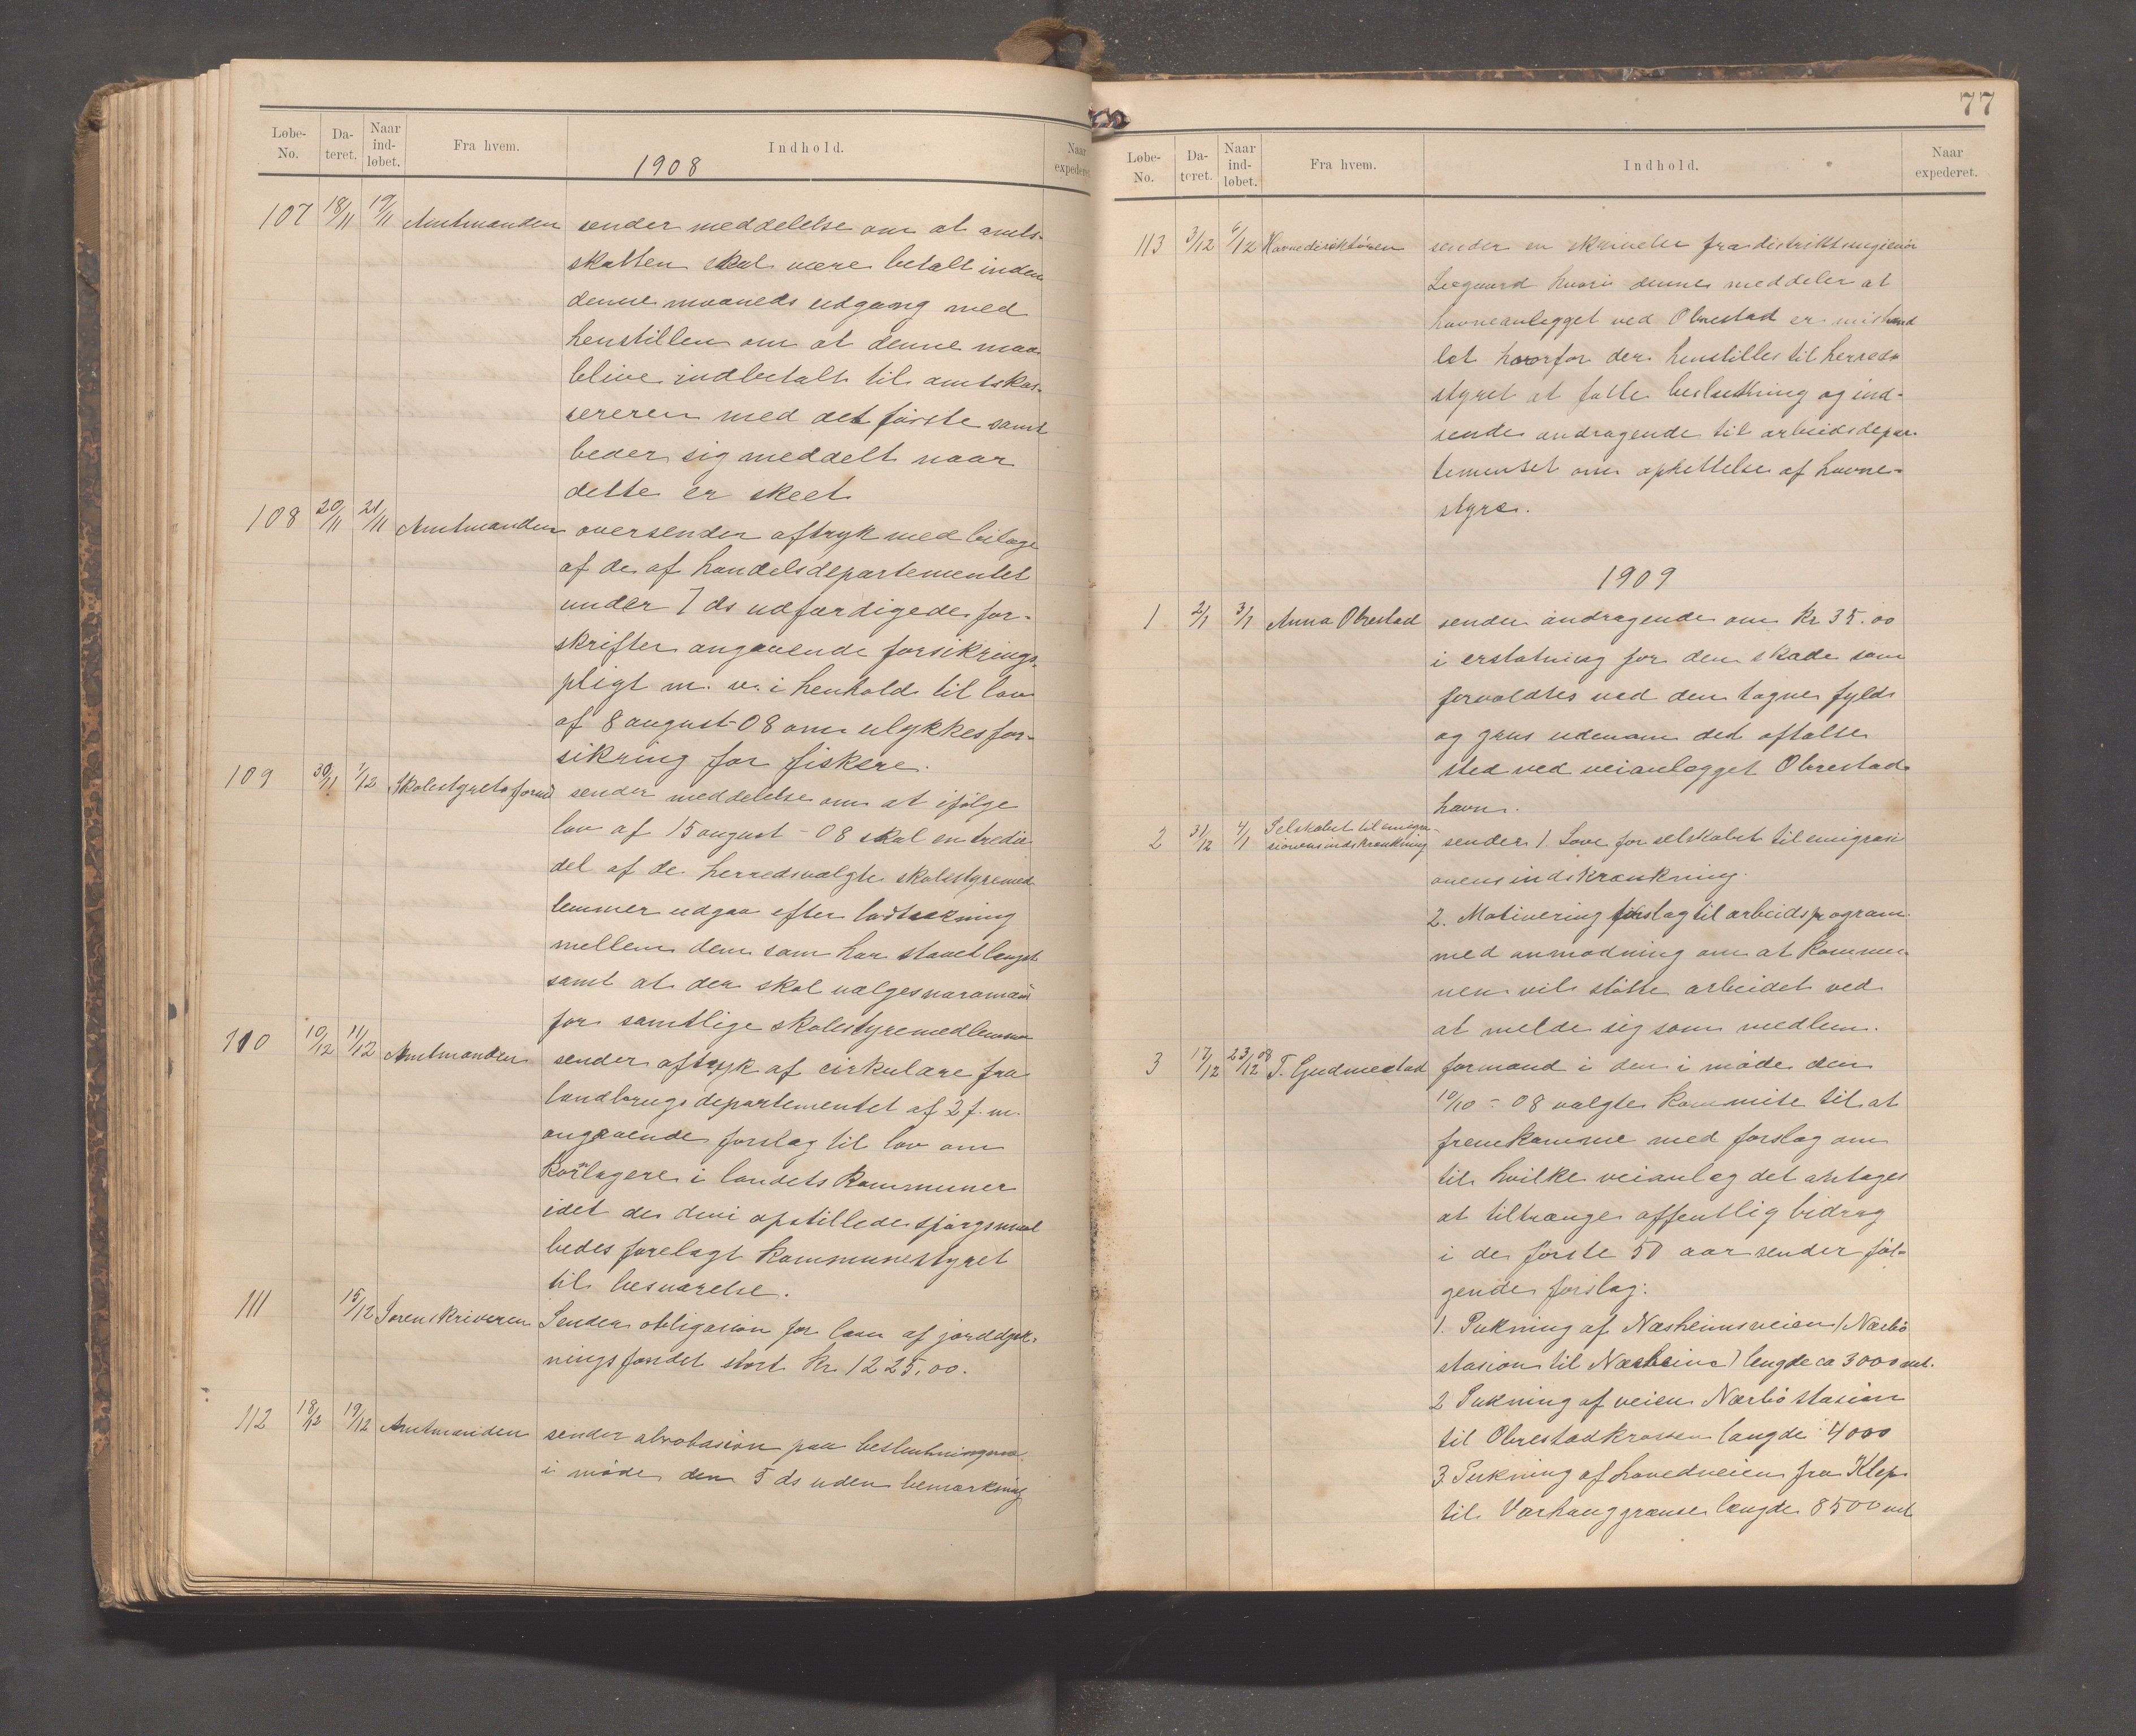 Løbe-No. Da-teret. Naar ind-løbet. Fra hvem. Indhold. Naar expederet
1908
107 18/11 19/11 Amtmanden sender meddelelse om at amts-
skatten skal være betalt inden
denne maaneds udgang med
henstillen om at denne maa
blive indbetalt til amtskas-
sereren med det første samt
beder sig meddelt naar
dette er skeet.
108 20/11 21/11 Amtmanden oversender aftryk med bilage
af de af handelsdepartementet
under 7 ds udfærdigede for-
skrifter angaaende forsikrings-
pligt m. v. i henhold til lov
af 8 august-08 om ulykkesfor-
sikring for fiskere.
109 30/11 1/12 Skolestyrets formd sender meddelelse om at ifølge
lov af 15 august - 08 skal en tredie
del af de herredsvalgte skolestyremed
lemmer udgaa efter lodtrekning
mellem dem som har staaet længst
samt at der skal vælges varamæn
for samtlige skolestyremedlemmer
110 10/12 11/12 Amtmanden sender aftryk af cirkulære fra
landbrugsdepartementet af 2 f. m.
angaaende forslag til lov om
kornlagere i landets kommuner
idet de deri opstillede spørgsmaal
bedes forelagt kommunestyret
til besvarelse.
111 15/12 Sorenskriveren Sender obligasion for laan af jorddyrk-
ningsfondet stort kr. 1225,00.
112 18/12 19/12 Amtmanden sender abrobasion paa beslutningerne
i møde den 5 ds uden bemærkning
77
Løbe-No. Da-teret. Naar ind-løbet. Fra hvem. Indhold. Naar expederet.
113 3/12 6/12 Havnedirektøren sender en skrivelse fra distriktsingieniør
Leegaard hvori denne meddeler at
havneanlegget ved Obrestad er mishand
let hvorfor der henstilles til herreds-
styret at fatte beslutning og ind-
sende andragende til arbeidsdepar-
tementet om oprettelse af havne-
styre.
1909
1 2/1 3/1 Anna Obrestad sender andragende om kr 35.00
i erstatning for den skade som
forvoldtes ved den tagne fyld
og grus udenom det aftalte
sted ved veianlægget Obrestad
havn.
2 31/12 4/1 Selskabet til emigra-
sionens indskrænkning sender 1. Love for selskabet til emigrasi
onens indskrænkning.
2. Motivering forslag til arbeidsprogram
med anmodning om at kommu-
nen vil støtte arbeidet ved
at melde sig som medlem.
3 17/12 23/12 08 T. Gudmestad formand i den i møde den
10/10 - 08 valgte kommite til at
fremkomme med forslag om
til hvilke veianlæg det antages
at tiltrænge offentlig bidrag
i de første 50 aar sender føl-
gende forslag:
1. Pukning af Næsheimsveien (Nærbø
stasion til Næsheim) længde ca 3000 mt.
2 Pukning af veien Nærbø stasion
til Obrestadkrossen længde 4000
3. Pukning af hovedveien fra Klep
til Varhaug grænse længde 8500 mt